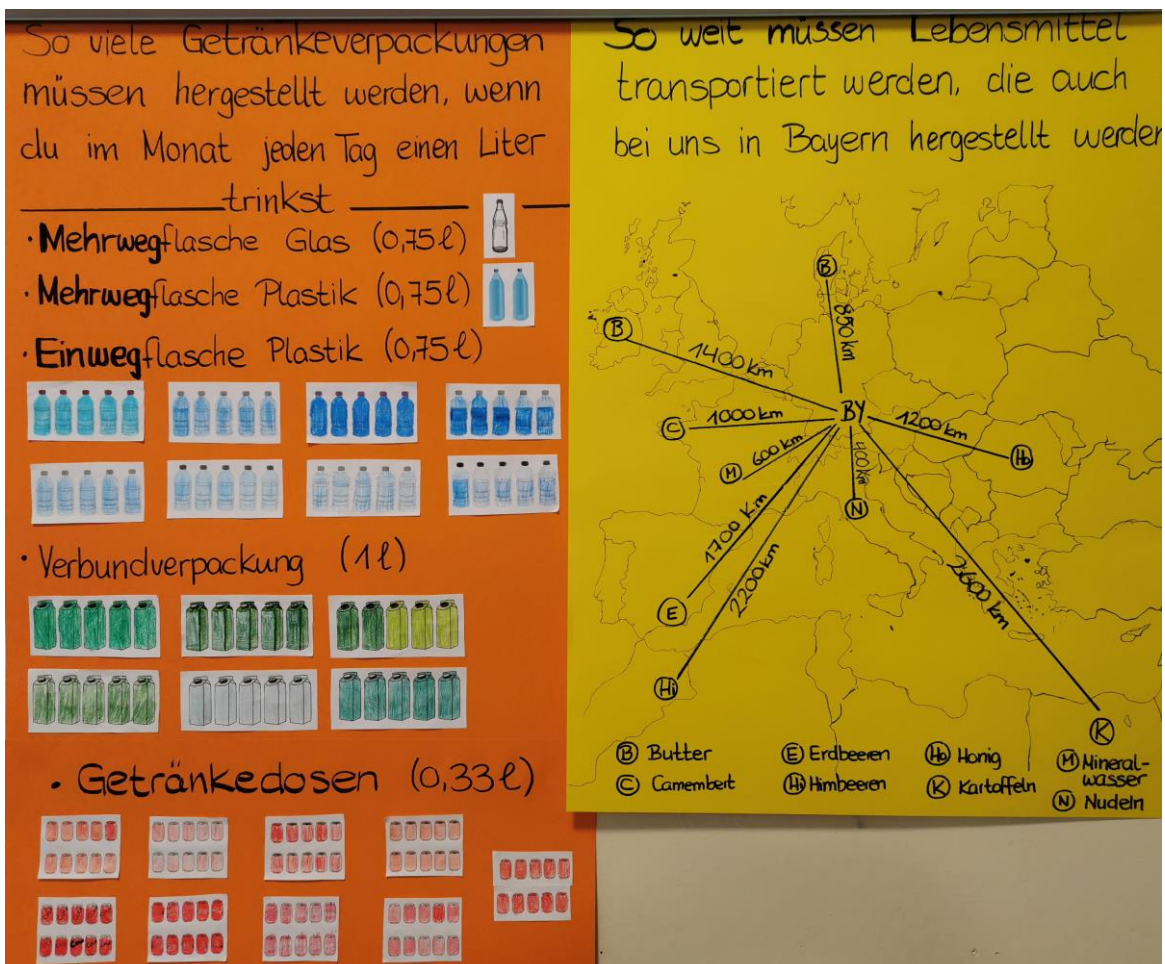 So viele Getränkeverpackungen
müssen hergestellt werden, wenn
du im Monat jeden Tag einen Liter
trinkst
· Mehrwegflasche Glas (0,75l)
· Mehrwegflasche Plastik (0,75l)
· Einwegflasche Plastik (0,75l)
· Verbundverpackung (1l)
· Getränkedosen (0,33l)
So weit müssen Lebensmittel
transportiert werden, die auch
bei uns in Bayern hergestellt werden
B
850 km
B
1400 km
BY
C
1000 km
1200 km
Ho
M
600 km
400 km
N
1700 km
2200 km
3600 km
E
Hi
K
B Butter
C Camembert
E Erdbeeren
Hi Himbeeren
Ho Honig
K Kartoffeln
M Mineral-
wasser
N Nudeln